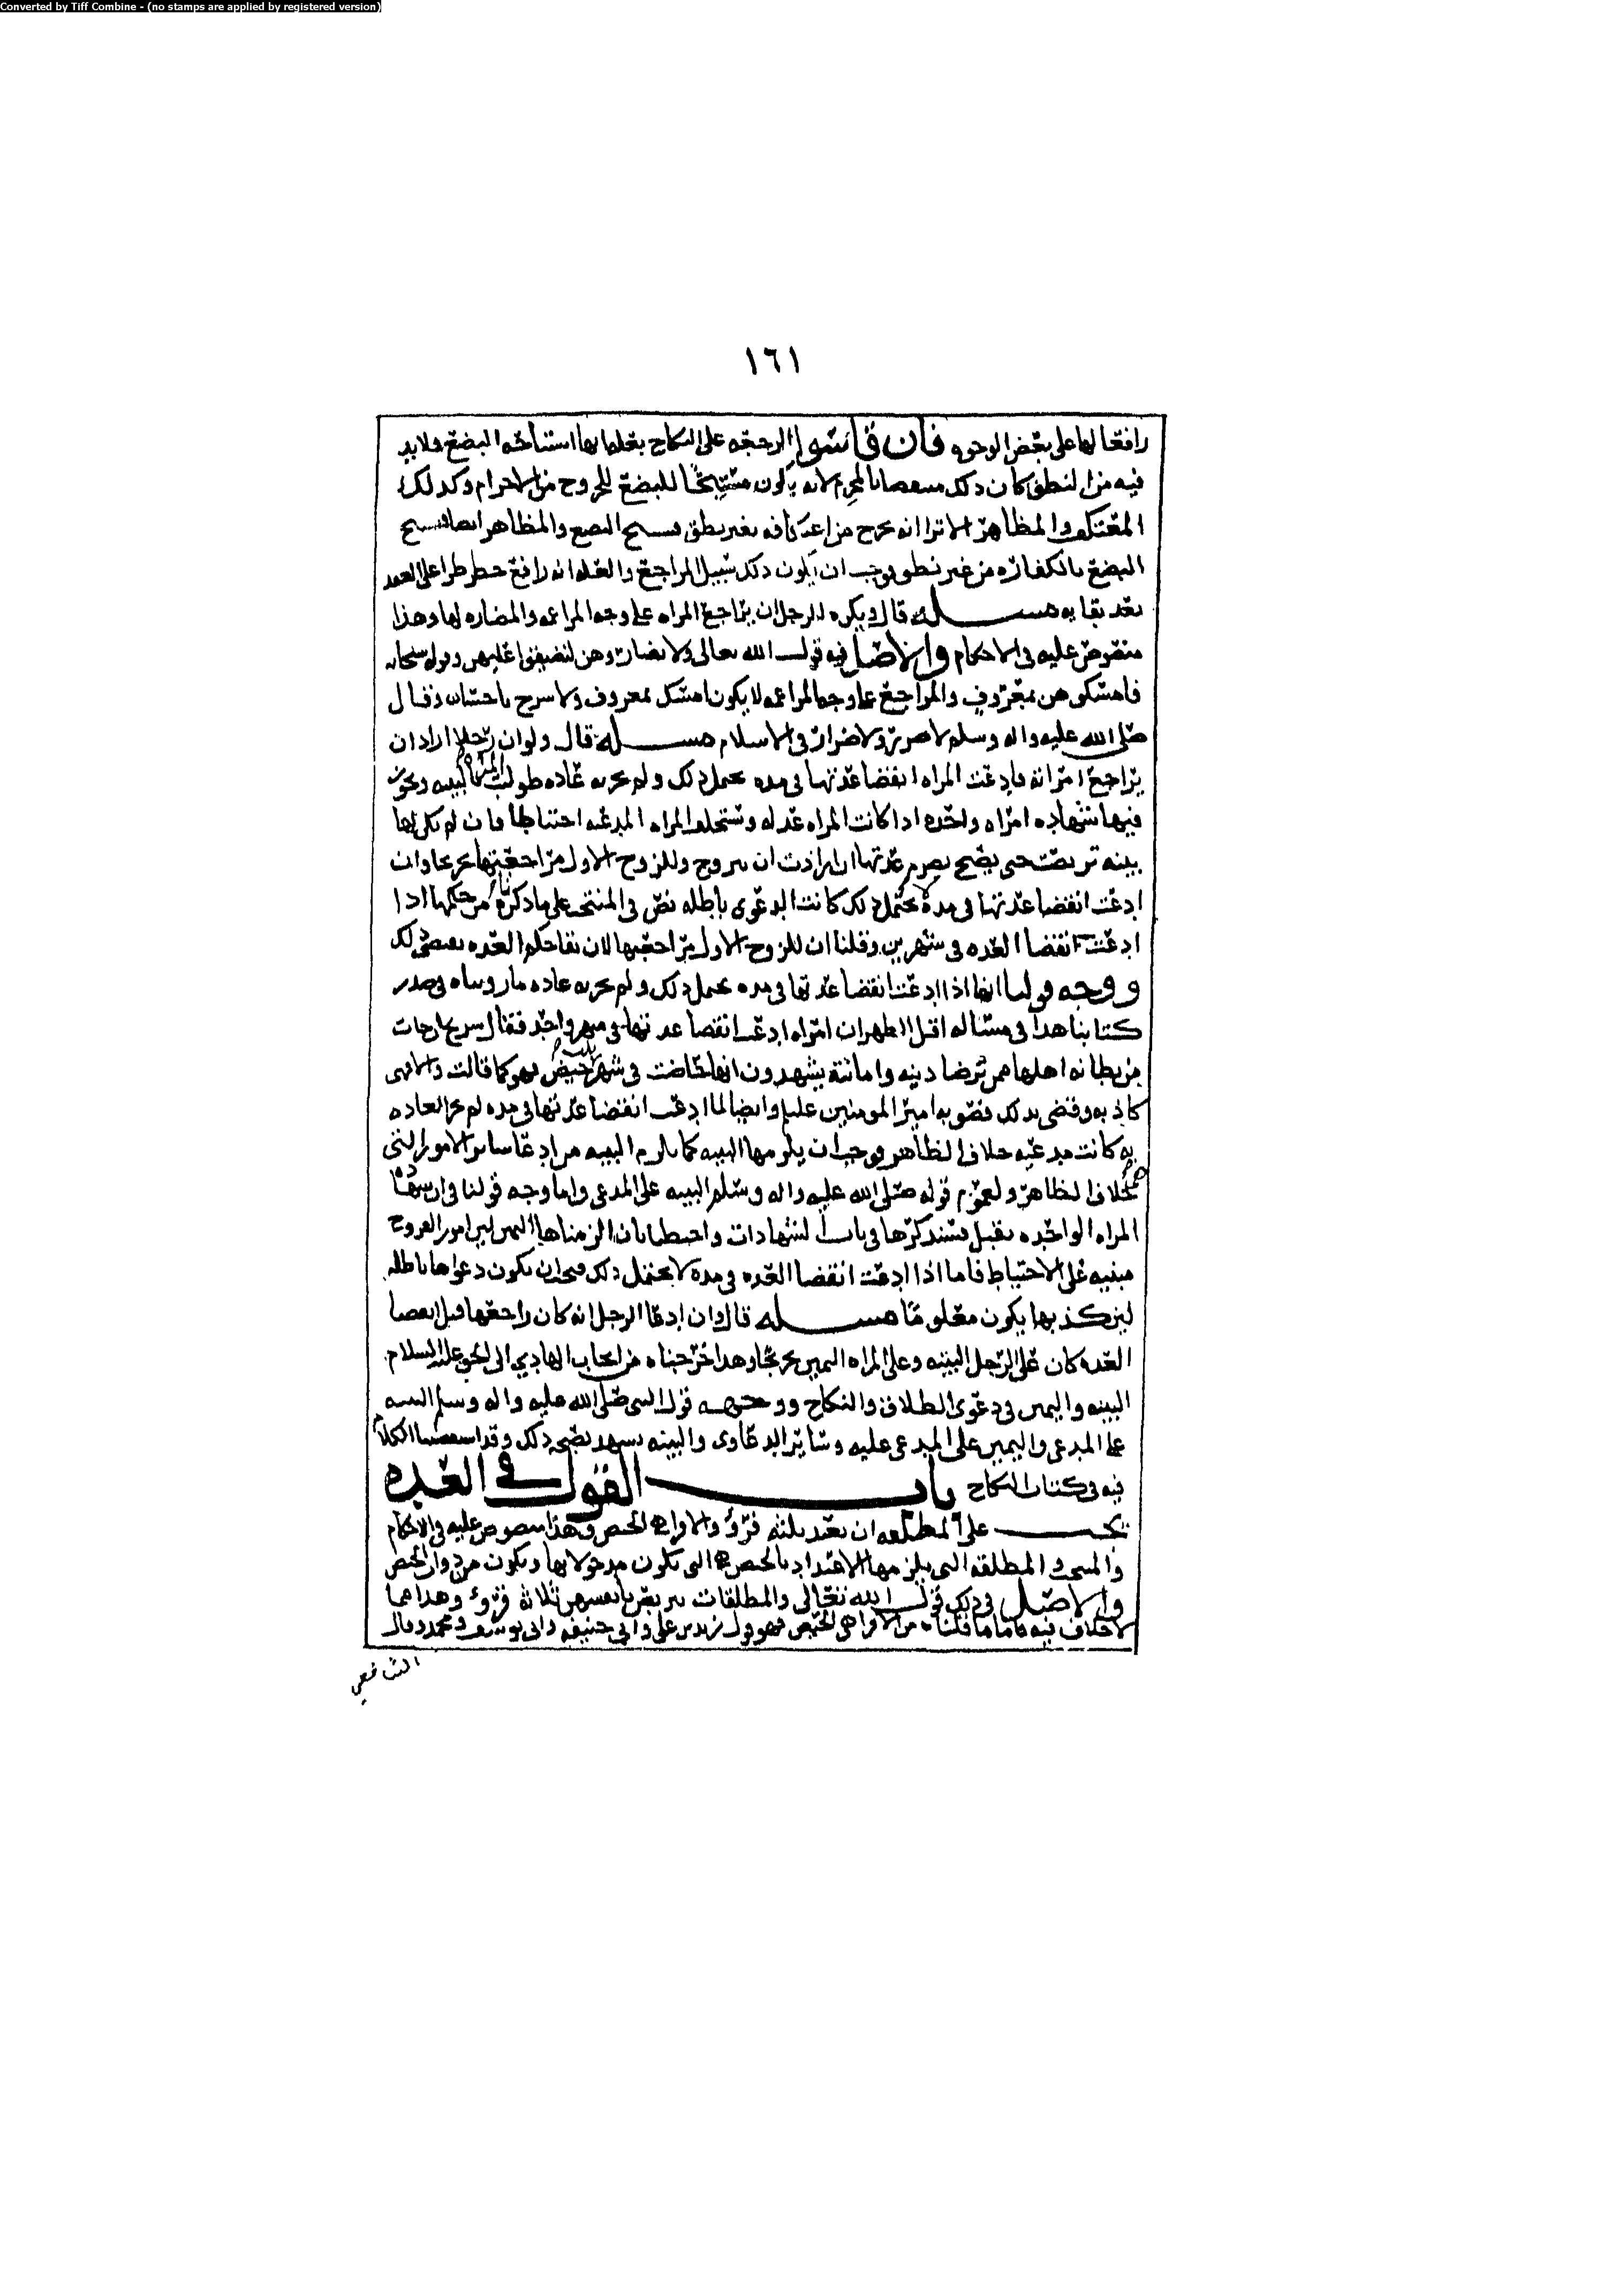 Converted by Tiff Combine - (no stamps are applied by registered version)
١٦١
رافعا لها على بعض الوجوه فان قاسوا الرجعه على النكاح بعله انها استباحه البضع ولابد
فيه من النطق كان ذلك منتقضا بالمحرم لانه يكون مستبيحا للبضع للخروج من الاحرام وكذلك
المعتكف والمظاهر الا ترا انه يخرج من اعتكافه بغير نطق فيستبيح البضع والمظاهر ايضا يستبيح
البضع بالكفاره من غير نطق فوجب ان يكون ذلك سبيل المراجع والعله انه رافع حظر طرا على العقد
بعد بقايه مسله قال ويكره للرجل ان يراجع المراه على وجه المراغمه والمضاره لها وهذا
منصوص عليه في الاحكام والاصل فيه قول الله تعالى ولا تضاروهن لتضيقوا عليهن وقوله سبحانه
فامسكوهن بمعروف والمراجع على وجه المراغمه لا يكون امسك بمعروف ولا سرح باحسان وقال
صلى الله عليه واله وسلم لا ضرر ولا ضرار في الاسلام مسله قال ولو ان رجلا اراد ان
يراجع امراته فادعت المراه انقضا عدتها في مده تحتمل ذلك ولم تجر به عاده طولبت المراه بالبينه وتجوز
فيها شهاده امراه واحده اذا كانت المراه عدله وتستحلف المراه المدعيه احتياطا فان لم تكن لها
بينه تربصت حتى يصح تصرم عدتها ان ارادت ان تزوج وللزوج الاول مراجعتها تخريجا وان
ادعت انقضا عدتها في مده لا تحتمل ذلك كانت الدعوى باطله نص في المنتخب على ما ذكرناه من حكمها اذا
ادعت انقضا العده في شهرين وقلنا ان للزوج الاول مراجعتها لان بقا حكم العده يقتضي ذلك
ووجه قولنا انها اذا ادعت انقضا عدتها في مده تحتمل ذلك ولم تجر به عاده ما رويناه في صدر
كتابنا هذا في مسئاله اقل الطهر ان امراه ادعت انقضا عدتها في شهر واحد فقال شريح ان جات
من بطانه اهلها ممن ترضا دينه وامانته يشهدون انها حاضت في شهر ثلاث حيض فهو كما قالت والا فهي
كاذبه وقضى بذلك فصوبه امير المومنين علىم وايضا لما ادعت انقضا عدتها في مده لم تجر العاده
به كانت مدعيه خلاف الظاهر فوجب ان يلزمها البينه كما يلزم البينه من ادعا ساير الامور التي
هي خلاف الظاهر ولعموم قوله صلى الله عليه واله وسلم البينه على المدعي واما وجه قولنا في ان شهادة
المراه الواحده تقبل فسنذكرها في باب الشهادات واحتطنا بان الزمناها اليمين لين امور الفروج
مبنيه على الاحتياط فاما اذا ادعت انقضا العده في مدة لا تحتمل ذلك فيجب ان تكون دعواها باطله
لين كذبها يكون معلوما مسله قال وان ادعا الرجل انه كان راجعها قبل انقضا
العده كان على الرجل البينه وعلى المراه اليمين تخريجا وهذا خرجناه من ايجاب الهادي الى الحق عليه السلام
البينه واليمين في دعوى الطلاق والنكاح ووجهه قول النبي صلى الله عليه واله وسلم البينه
على المدعي واليمين على المدعى عليه وسائر الدعاوى والبينه تشهد بصحه ذلك وقد استقصينا الكلام
فيه في كتاب النكاح باب القول في العده
تجب على المطلقه ان تعتد بثلثه قروء والاقرا هي الحيض وهذا منصوص عليه في الاحكام
والمنتخب والمطلقه التي يلزمها الاعتداد بالحيض هي التي تكون مدخولا بها وتكون من ذوات الحيض
والاصل في ذلك قول الله تعالى والمطلقات يتربصن بانفسهن ثلاثة قروء وهذا مما
لا خلاف فيه فاما ما قلناه من الاقرا هي الحيض فهو قول زيد بن علي وابي حنيفه وابي يوسف ومحمد وقال
الشافعي